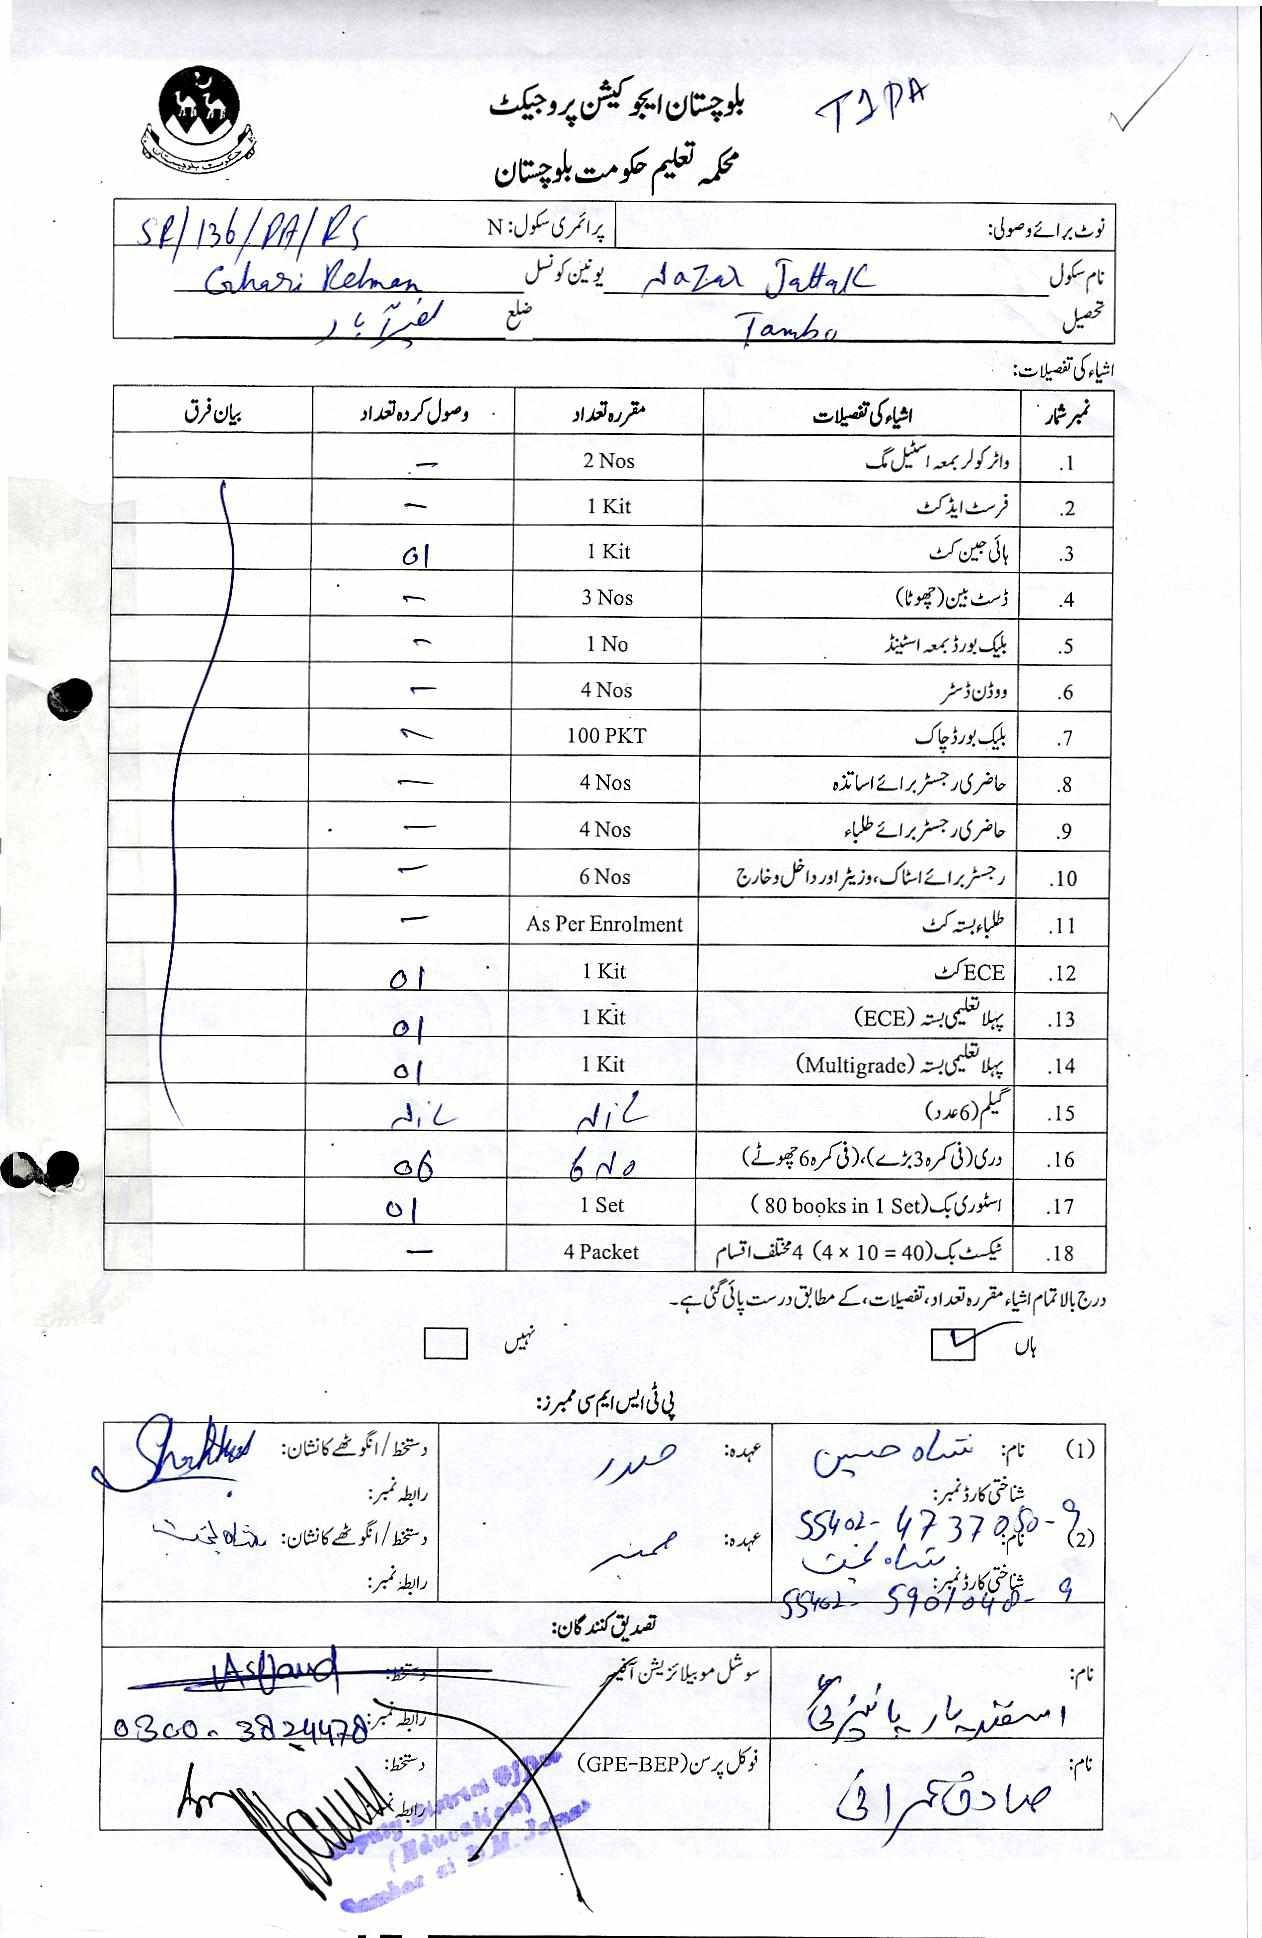 بلوچستان ایجوکیشن پروجیکٹ
محکمہ تعلیم حکومت بلوچستان
حکومت بلوچستان
نوٹ برائے وصولی: پرائمری سکول: N SR/136/PA/RS
نام سکول Nazar Jattak یونین کونسل Ghari Rehman
تحصیل Tambo ضلع نصیر آباد
اشیاء کی تفصیلات:
نمبر شمار اشیاء کی تفصیلات مقررہ تعداد وصول کردہ تعداد بیان فرق
1. واٹر کولر بمعہ اسٹیل مگ 2 Nos –
2. فرسٹ ایڈ کٹ 1 Kit –
3. ہائی جین کٹ 1 Kit 01
4. ڈسٹ بین (چھوٹا) 3 Nos –
5. بلیک بورڈ بمعہ اسٹینڈ 1 No –
6. ووڈن ڈسٹر 4 Nos –
7. بلیک بورڈ چاک 100 PKT –
8. حاضری رجسٹر برائے اساتذہ 4 Nos –
9. حاضری رجسٹر برائے طلباء 4 Nos –
10. رجسٹر برائے اسٹاک، وزیٹر اور داخل وخارج 6 Nos –
11. طلباء بستہ کٹ As Per Enrolment –
12. ECE کٹ 1 Kit 01
13. پہلا تعلیمی بستہ (ECE) 1 Kit 01
14. پہلا تعلیمی بستہ (Multigrade) 1 Kit 01
15. گیلم (6 عدد) NiL NiL
16. دری (فی کمرہ 3 بڑے)، (فی کمرہ 6 چھوٹے) 6 No 06
17. اسٹوری بک (80 books in 1 Set) 1 Set 01
18. ٹیکسٹ بک (4 × 10 = 40) 4 مختلف اقسام 4 Packet –
درج بالا تمام اشیاء مقررہ تعداد، تفصیلات، کے مطابق درست پائی گئی ہے۔
ہاں نہیں
پی ٹی ایس ایم سی ممبرز:
(1) نام: شاہ حسین عہدہ: صدر دستخط/انگوٹھے کا نشان:
شناختی کارڈ نمبر: 55402-4737050-9 رابطہ نمبر:
(2) نام: شاہ بخت عہدہ: ممبر دستخط/انگوٹھے کا نشان: شاہ بخت
شناختی کارڈ نمبر: 55402-5901048-9 رابطہ نمبر:
تصدیق کنندگان:
نام: اسفندیار سوشل موبیلائزیشن آفیسر دستخط:
رابطہ نمبر: 0300-3824478
نام: صادق عمرانی فوکل پرسن (GPE-BEP) دستخط:
رابطہ
Deputy District Officer
(Education)